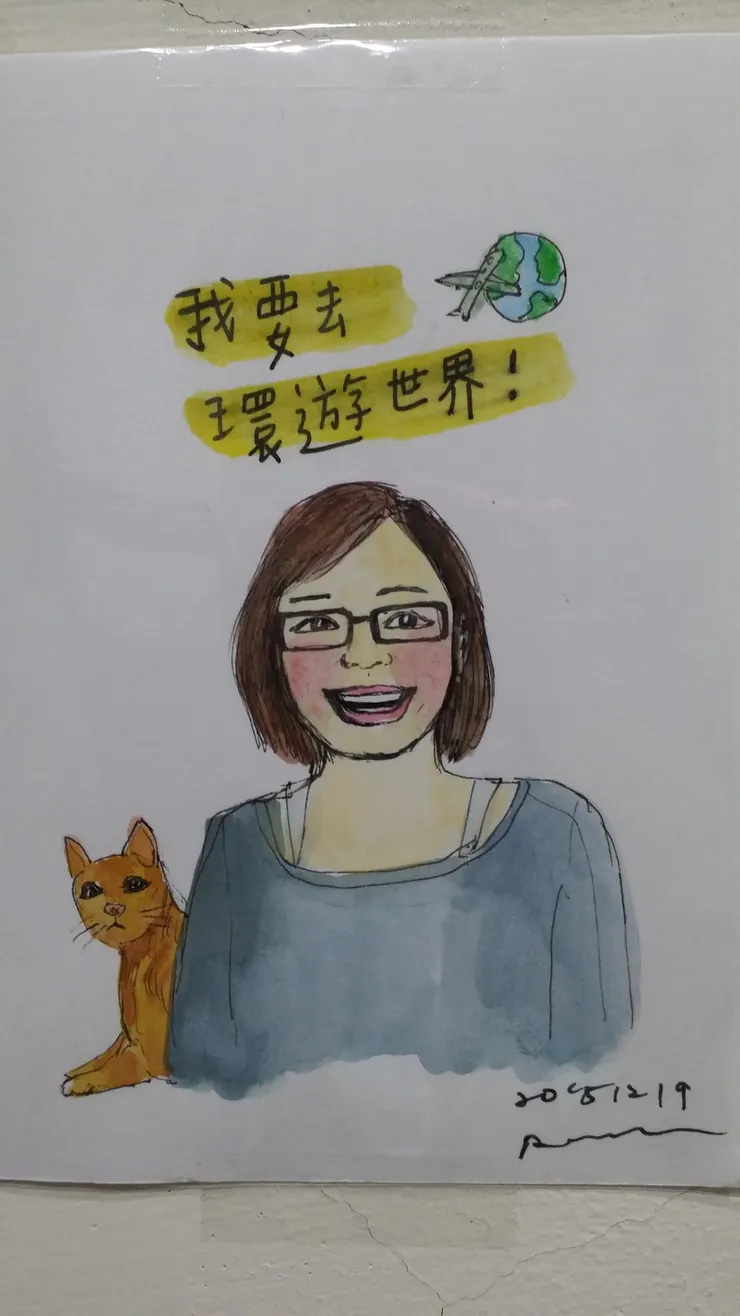 我要去
環遊世界！
20151219